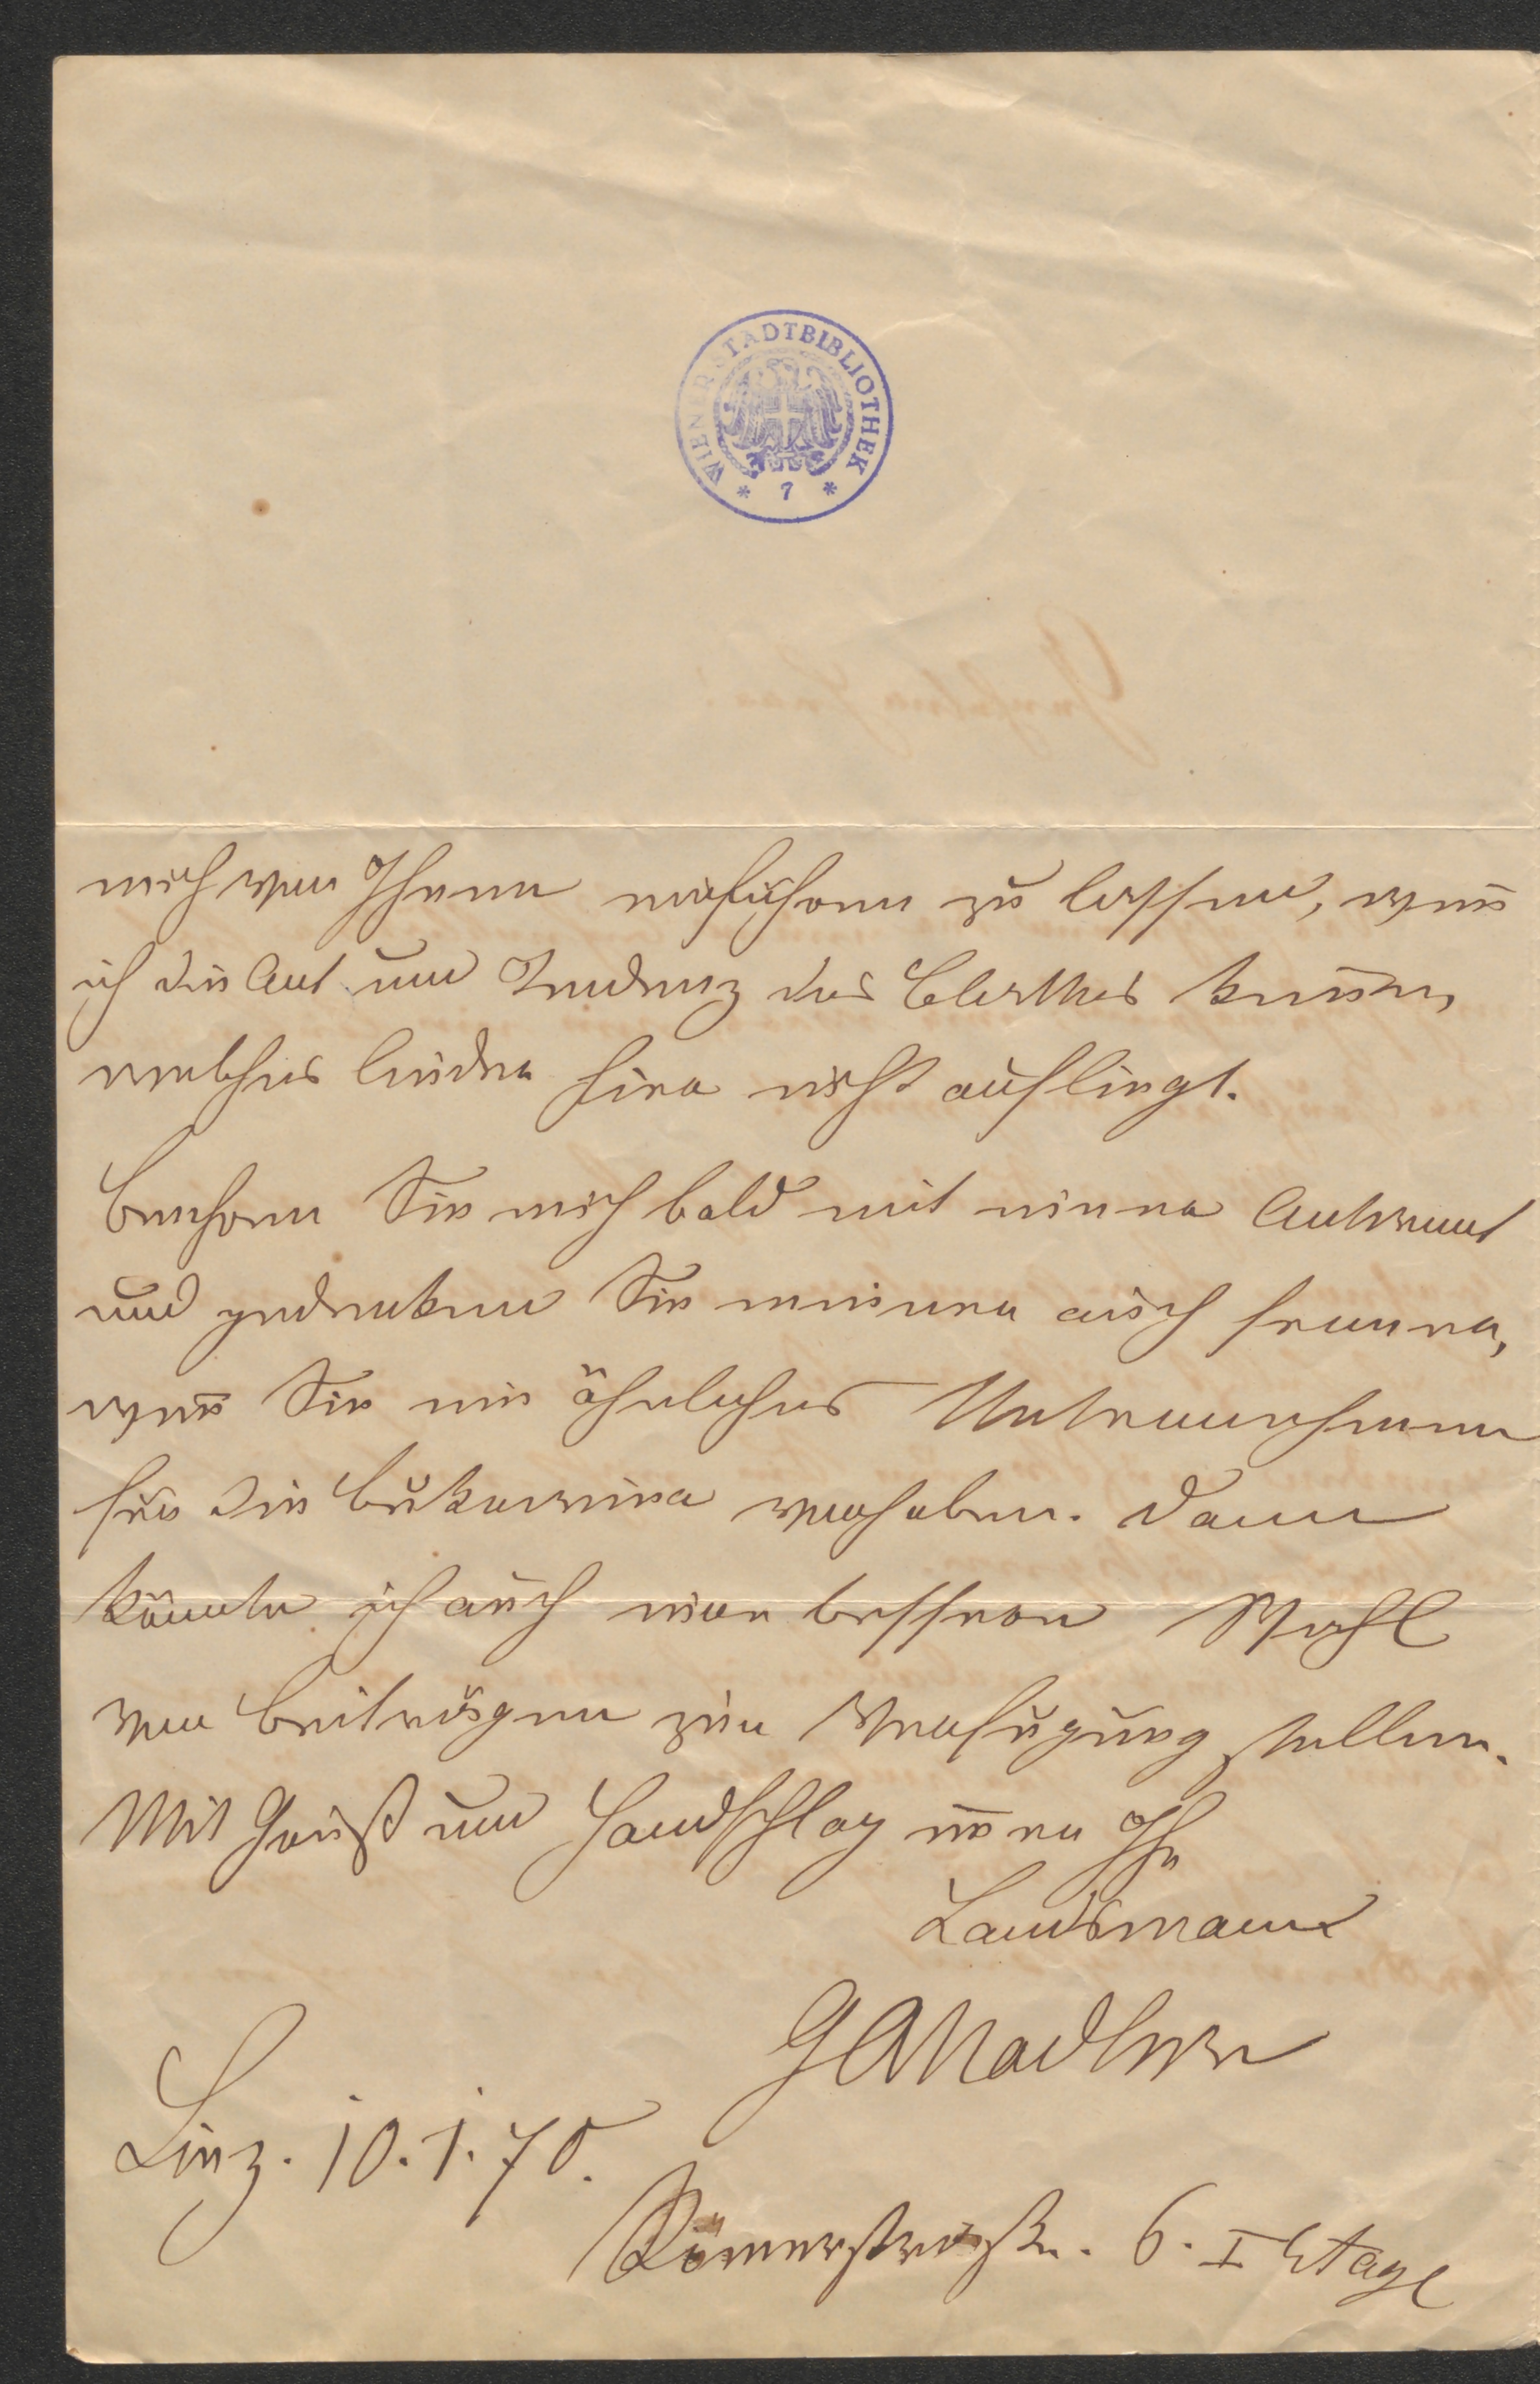 WIENER STADTBIBLIOTHEK
* 7 *
mich von Ihnen einführen zu lassen, wenn
ich die Art und Tendenz des Blattes kenne,
welches leider hier nicht aufliegt.
Beehren Sie mich bald mit einer Antwort
und gedenken Sie meiner auch ferner,
wenn Sie ein ähnliches Unternehmen
für die Bukowina vorhaben. Dann
könnte ich auch eine bessere Wahl
von Beiträgen zur Verfügung stellen.
Mit Gruß und Handschlag Ihr
Landsmann
Linz. 10. 1. 70.
Römerstraße. 6. I Etage